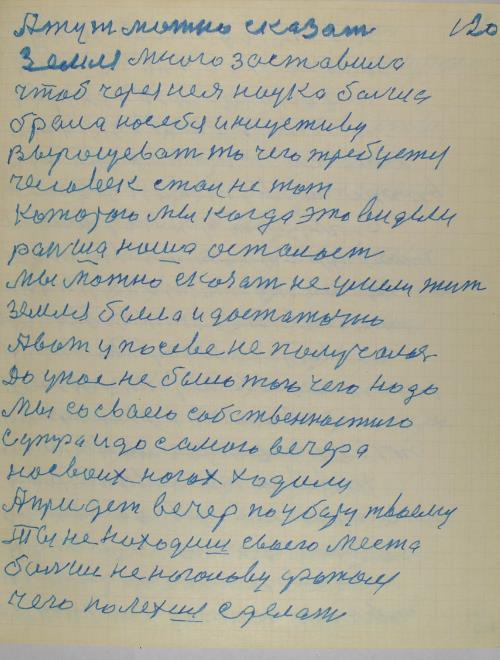 А тут можно сказат 120
Земля много заставила
чтоб через нея наука болша
брала на себя инициативу
выращеват то чего требуетця
человек стал не тот
которого мы когда это видели
ранша наша осталост
мы можно сказат не умели жит
земля была и достаточно
А вот у посеве не получалос
До у нас не было того чего надо
мы со сваею собственностию
с утра и до самого вечера
на своих ногах ходили
А придет вечер по убагу твоему
Ты не находиш своего места
болши не ногову
чего полехша сделат